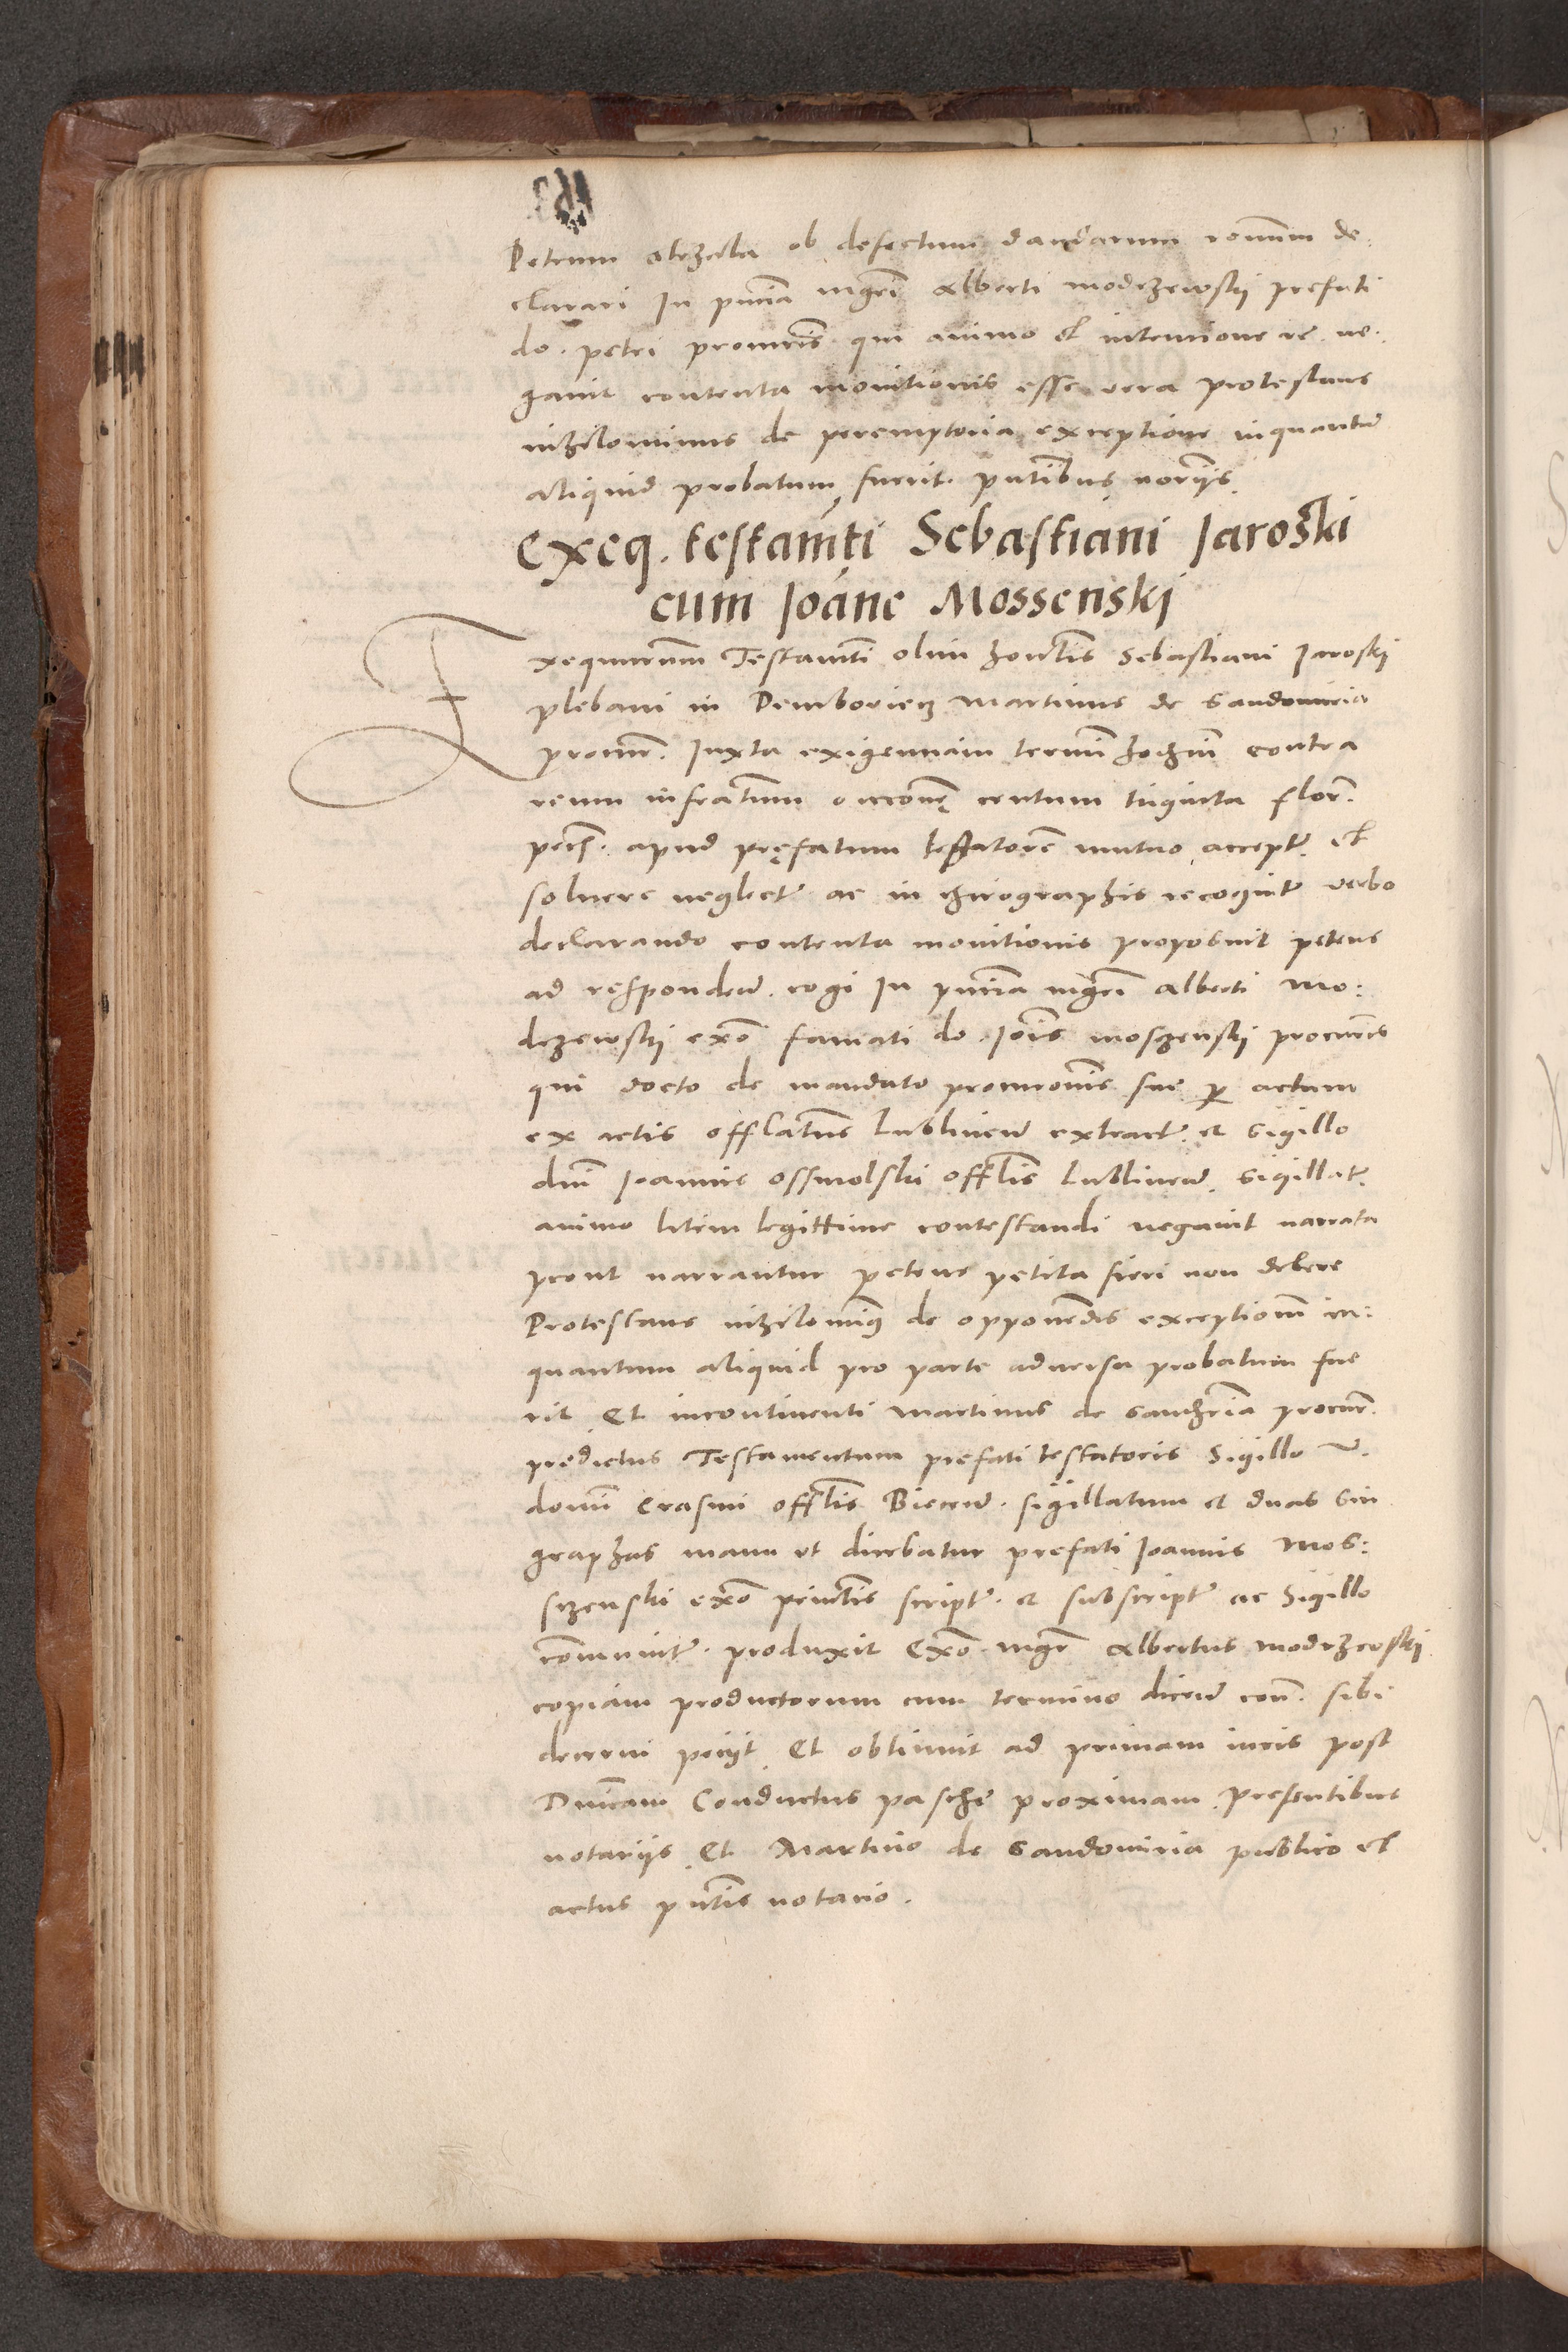 Petrum Strzala ob defectum dandarum rōnum de-
clarari In pn̄cia mgr̄i Alberti modrzewskij prefati
do. petri procurr̄is qui animo et intentione rē. ne-
gauit contenta monitionis esse vera protestans
nihilominus de peremptoria exceptione inquantū
aliquid probatum fuerit. pn̄tibus norijs
Exeq. testam̄ti Sebastiani Jaroski
cum Joāne Mossenski
Exequutorum Testam̄ti olim hon̄lis Sebastiani Jaroski
plebani in Demboviecz Martinus de Sandomiria
procur̄. Juxta exigentiam termi hodie͞rn contra
reum infra͞tum o centum triginta flor̄.
pecc̄. apud pręfatum testatorē mutuo accept. et
soluere neglect. ac in chirographis recognit. verbo
declarando contenta monitionis proposuit petens
ad respondeñ. cogi In pn̄cia mgr̄i Alberti Mo:
drzewskij exō famati do. Joīs moszenskij procur̄is
qui docto de mandato procurōnis sue p̱ actum
ex actis officl̄atus Lublineñ extract. et sigillo
dn̄i Joannis Ossmolski officl̄is Lublineñ. sigillat.
animo litem legittime contestandi negauit narrata
prout narrantur petens petita fieri non debere
Protestans nihilomīs de opponēdis exceptiom̄ in:
quantum aliquid pro parte aduersa probatum fue
rit Et incontinenti Martinus de Sandr̄ia procur̄.
predictus Testamentum prefati testatoris Sigillo V.
domī Erasmi officl̄is Bieceñ. sigillatum et duas sin
graphas manu vt dicebatur prefati Joannis Mos:
szenski exō princl̄is script. et subscript. ac Sigillo
cōmunit. produxit Exō mgr̄ Albertus modrzewskij
copiam productorum cum termino diceñ con̄. sibi
decerni pecijt Et obtinuit ad primam iuris post
Dn̄icam Conductus pasche proximam Presentibus
notarijs Et Martino de Sandomiria publico et
actus pn̄tis notario.